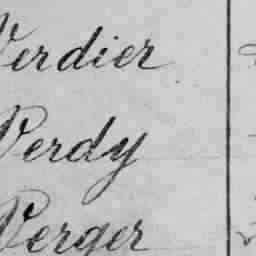 Verdier
Verdy
Verger